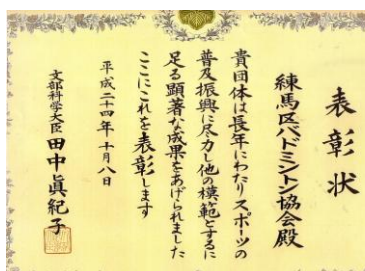 表彰状
練馬区バドミントン協会殿
貴団体は長年にわたりスポーツの
普及振興に尽力し他の模範とするに
足る顕著な成果をあげられました
ここにこれを表彰します
平成二十四年十月八日
文部科学大臣 田中眞紀子